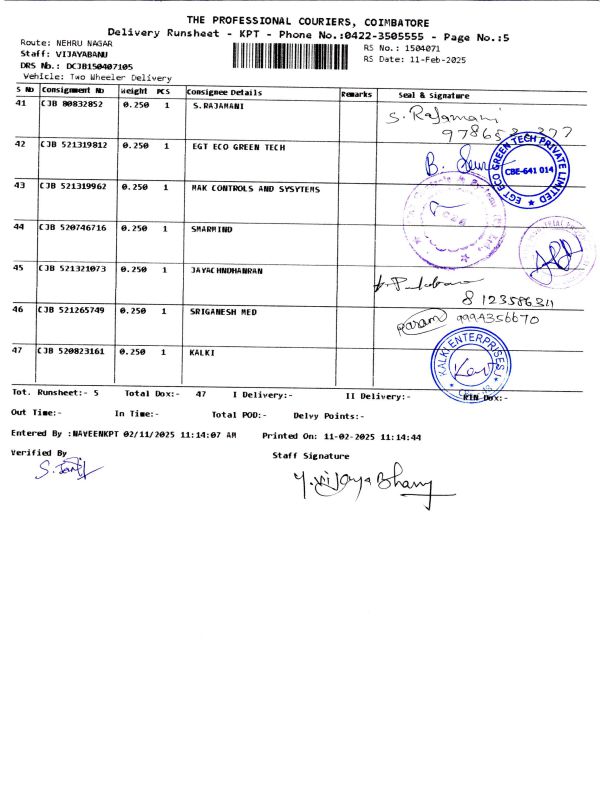 THE PROFESSIONAL COURIERS, COIMBATORE
Delivery Runsheet - KPT - Phone No.:0422-3505555 - Page No.:5
Route: NEHRU NAGAR
RS No.: 1504071
Staff: VIJAYABANU
RS Date: 11-Feb-2025
DRS No.: DCJB150407105
Vehicle: Two Wheeler Delivery
S No Consignment No Weight PCS Consignee Details Remarks Seal & Signature
41 CJB 80832852 0.250 1 S.RAJAMANI S. Rajamani
42 CJB 521319812 0.250 1 EGT ECO GREEN TECH
EGT ECO GREEN TECH PRIVATE LIMITED
CBE-641 014
43 CJB 521319962 0.250 1 MAK CONTROLS AND SYSYTEMS
44 CJB 520746716 0.250 1 SMARMIND
45 CJB 521321073 0.250 1 JAYACHNDHANRAN
8 123586311
46 CJB 521265749 0.250 1 SRIGANESH MED
param 9994356670
47 CJB 520823161 0.250 1 KALKI
KALKI ENTERPRISES
Tot. Runsheet:- 5 Total Dox:- 47 I Delivery:- II Delivery:- RIN Dox:-
Out Time:- In Time:- Total POD:- Delvy Points:-
Entered By :NAVEENKPT 02/11/2025 11:14:07 AM Printed On: 11-02-2025 11:14:44
Verified By
Staff Signature
Y.VijayaBhanу